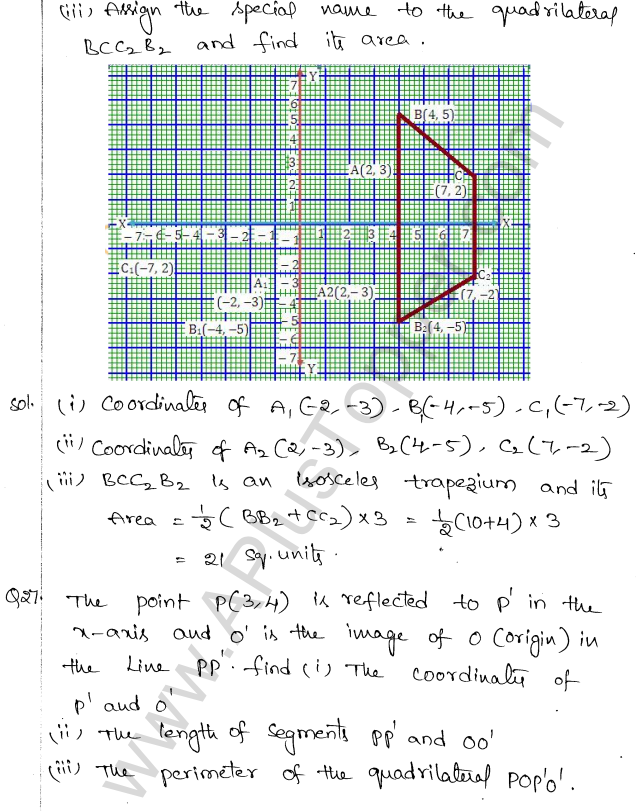 (iii) Assign the special name to the quadrilateral
BCC₂B₂ and find its area.
Y
7
6
5
4
3
2
1
B(4, 5)
A(2, 3)
C
(7, 2)
X' -7 -6 -5 -4 -3 -2 -1 1 2 3 4 5 6 7 X
-1
-2
-3
-4
-5
-6
-7
C₁(-7, 2)
A₁
(-2, -3)
A2(2, -3)
C₂
(7, -2)
B₁(-4, -5)
B₂(4, -5)
Y
Sol. (i) Coordinates of A₁(-2, -3), B₁(-4, -5), C₁(-7, -2)
(ii) Coordinates of A₂(2, -3), B₂(4, -5), C₂(7, -2)
(iii) BCC₂B₂ is an isosceles trapezium and its
Area = 1/2 (BB₂ + CC₂) × 3 = 1/2 (10+4) × 3
= 21 Sq. units.
Q27. The point P(3,4) is reflected to P' in the
x-axis and O' is the image of O (origin) in
the Line PP'. find (i) The coordinates of
P' and O'
(ii) The length of segments PP' and OO'
(iii) The perimeter of the quadrilateral POP'O'.
www.APlusTopper.com